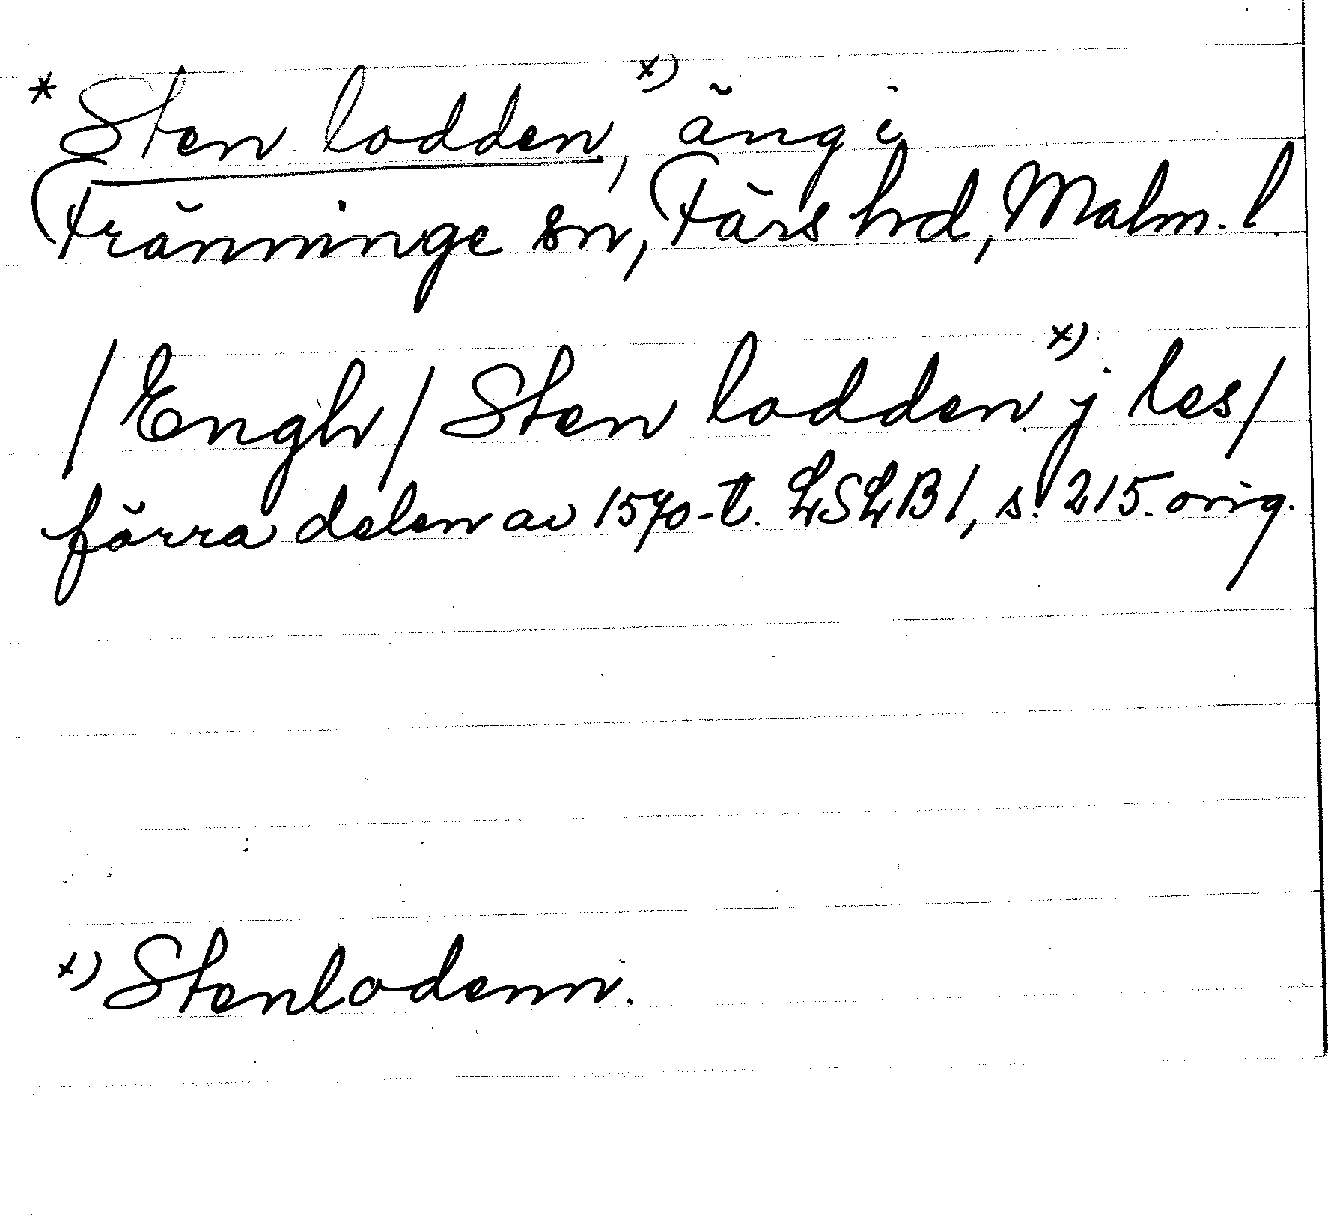 * Sten lodden, x) äng i
Fränninge sn, Färs hd, Malm. l.
/Engh/ Sten lodden x) j les/
förra delen av 1570-t. LSLB 1, s. 215. orig.
x) Stenlodenn.